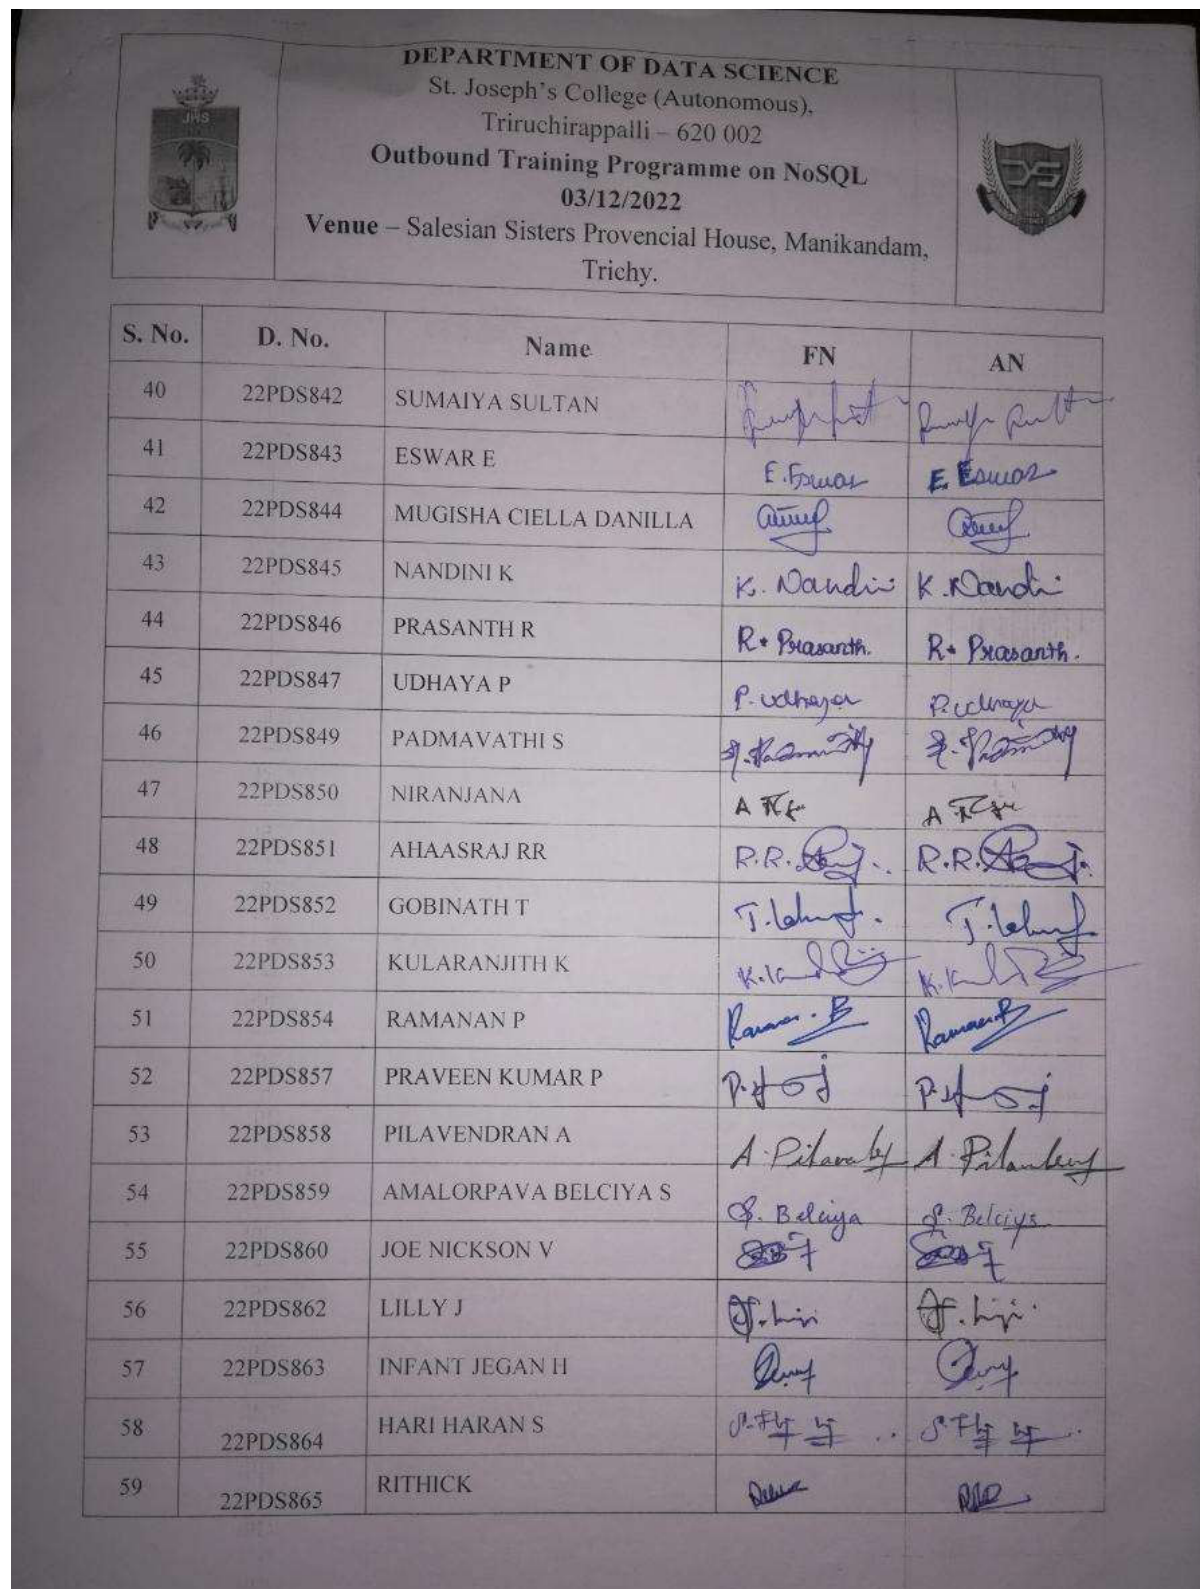 JHS
DEPARTMENT OF DATA SCIENCE
St. Joseph's College (Autonomous),
Triruchirappalli – 620 002
Outbound Training Programme on NoSQL
03/12/2022
Venue – Salesian Sisters Provencial House, Manikandam,
Trichy.
S. No. D. No. Name FN AN
40 22PDS842 SUMAIYA SULTAN
41 22PDS843 ESWAR E E. Eswar E. Eswar
42 22PDS844 MUGISHA CIELLA DANILLA
43 22PDS845 NANDINI K K. Nandini K. Nandini
44 22PDS846 PRASANTH R R. Prasanth. R. Prasanth.
45 22PDS847 UDHAYA P P. Udhaya P. Udhaya
46 22PDS849 PADMAVATHI S
47 22PDS850 NIRANJANA
48 22PDS851 AHAASRAJ RR R.R. R.R.
49 22PDS852 GOBINATH T
50 22PDS853 KULARANJITH K
51 22PDS854 RAMANAN P
52 22PDS857 PRAVEEN KUMAR P
53 22PDS858 PILAVENDRAN A
54 22PDS859 AMALORPAVA BELCIYA S S. Belciya S. Belciya
55 22PDS860 JOE NICKSON V
56 22PDS862 LILLY J
57 22PDS863 INFANT JEGAN H
58 22PDS864 HARI HARAN S
59 22PDS865 RITHICK